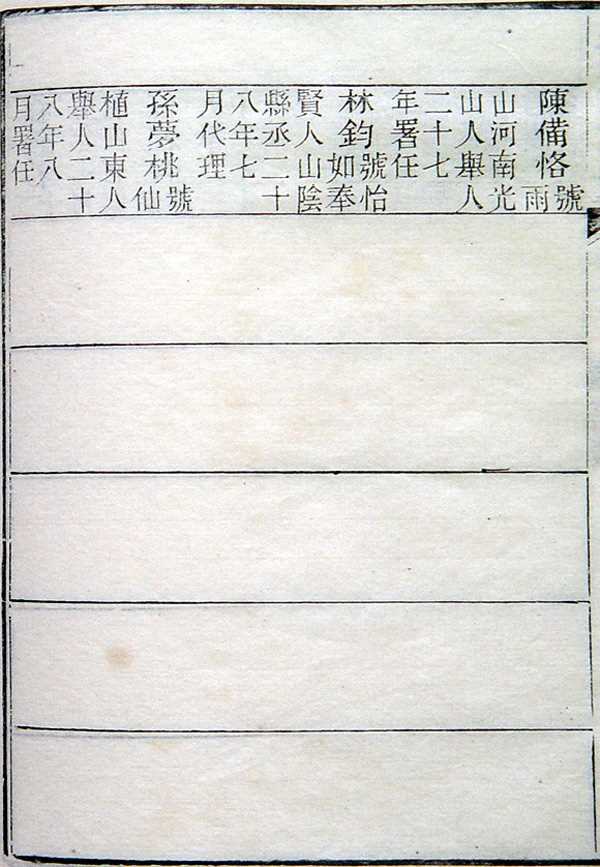 陳備恪號
雨
山河南光
山人舉人
二十七
年署任
林鈞號怡
如奉
賢人山陰
縣丞二十
八年七
月代理
孫夢桃號
仙
植山東人
舉人二十
八年八
月署任